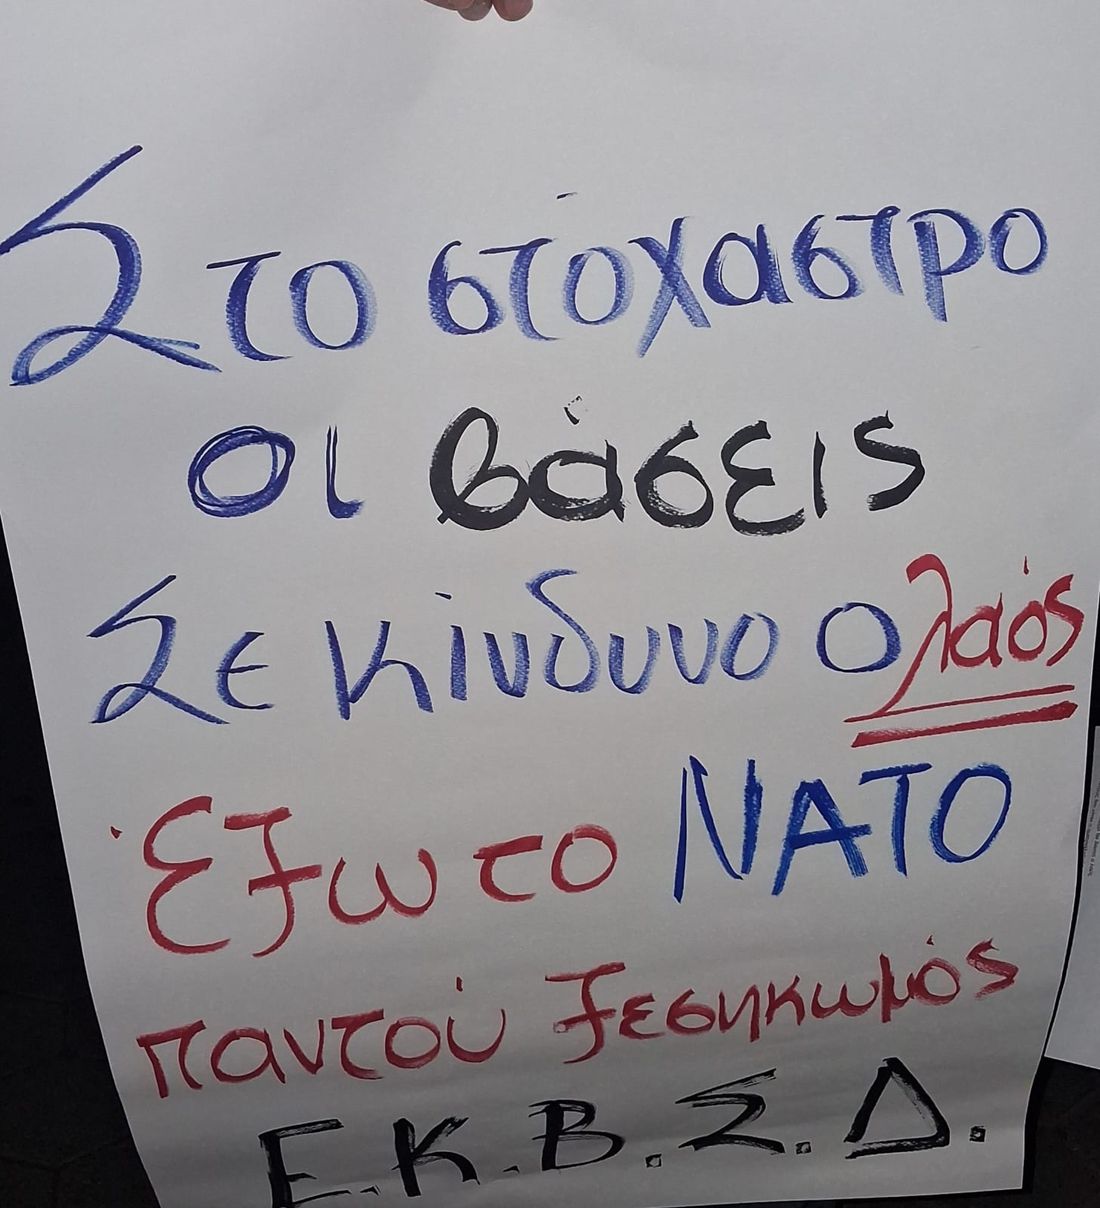 Στο στόχαστρο
οι βάσεις
Σε κίνδυνο ο λαός
Έξω το ΝΑΤΟ
παντού ξεσηκωμός
Ε.Κ.Β.Σ.Δ.